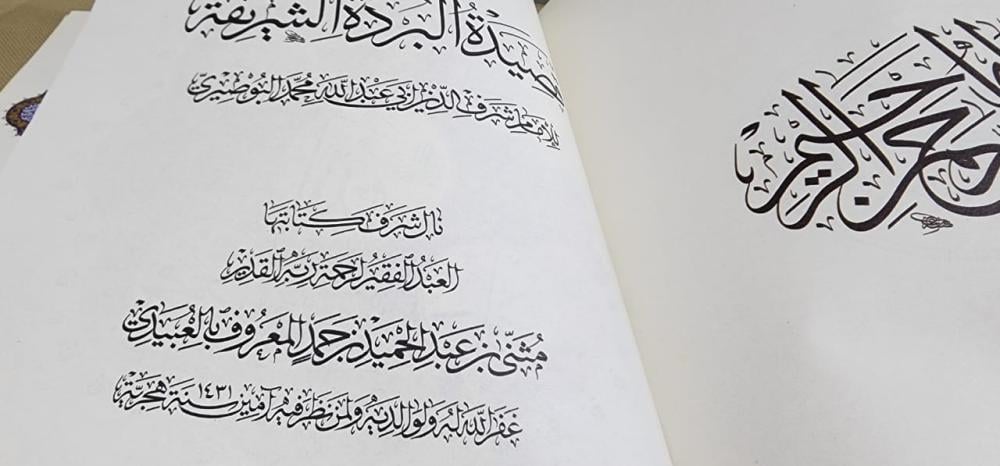 قصيدة البردة الشريفة
للإمام شرف الدين أبي عبد الله محمد البوصيري
نال شرف كتابتها
العبد الفقير لرحمة ربه القدير
مثنى بن عبد الحميد بن حمد المعروف بالعبيدي
غفر الله له ولوالديه ولمن نظر فيه آمين سنة ١٤٣١ هجرية